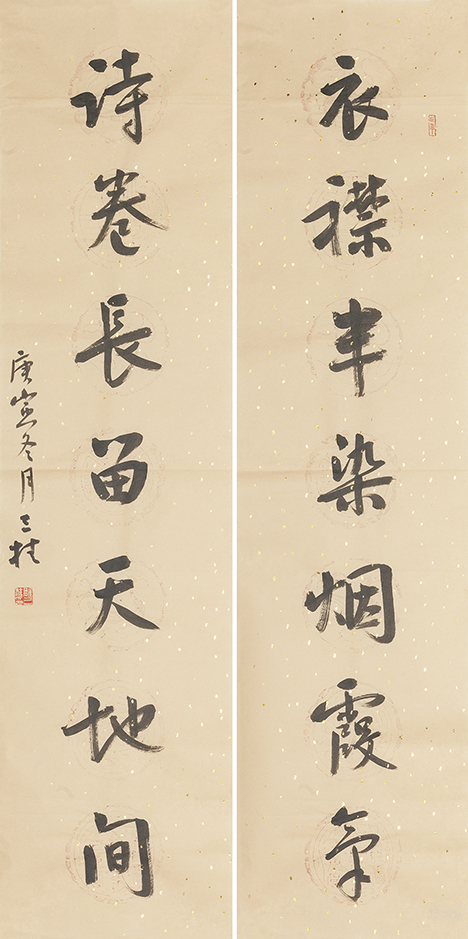 衣襟半染烟霞氣
诗卷長留天地间
庚寅冬月三桂